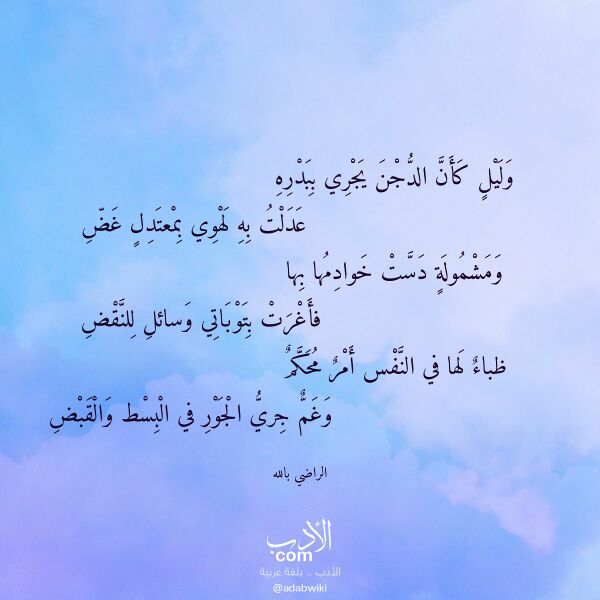 وَلَيْلٍ كَأَنَّ الدُّجْنَ يَجْرِي بِبَدْرِهِ
عَدَلْتُ بِهِ لَهْوِي بِمْعتَدِلٍ غَضِّ
وَمَشْمُولَةٍ دَسَّتْ خَوادِمُها بِها
فأَغْرَتْ بِتَوْبَاتِي وَسائلِ لِلنَّقْضِ
ظباءٌ لَها في النَّفْس أَمْرٌ مُحَكَّمٌ
وَغَمٌّ جِريُّ الْجَوْرِ في الْبِسْط وَالْقَبْضِ
الراضي بالله
الأدب
com
الأدب .. بلغة عربية
@adabwiki